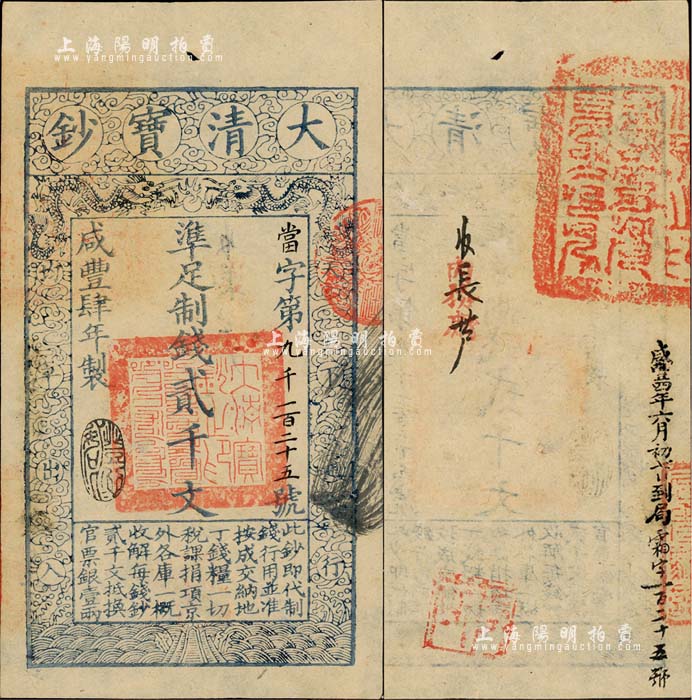 上海陽明拍賣
www.yangmingauction.com
大清寶鈔
當字第九千一百二十五號
準足制錢貳千文
咸豐肆年製
此鈔即代制
錢行用並准
按成交納地
丁錢糧一切
稅課捐項京
外各庫一概
收解每錢鈔
貳千文抵換
官票銀壹兩
天
下
平
出
入
行
上海陽明拍賣
www.yangmingauction.com
年六月初
到局
字一百二十五號
收長
上海陽明拍賣
www.yangmingauction.com